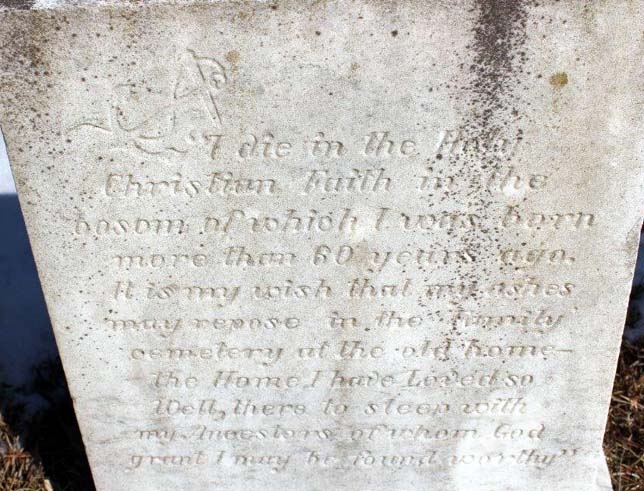 "I die in the Holy
Christian Faith in the
bosom of which I was born
more than 60 years ago.
It is my wish that my ashes
may repose in the family
cemetery at the old home—
the Home I have Loved so
Well, there to sleep with
my Ancestors of whom God
grant I may be found worthy"